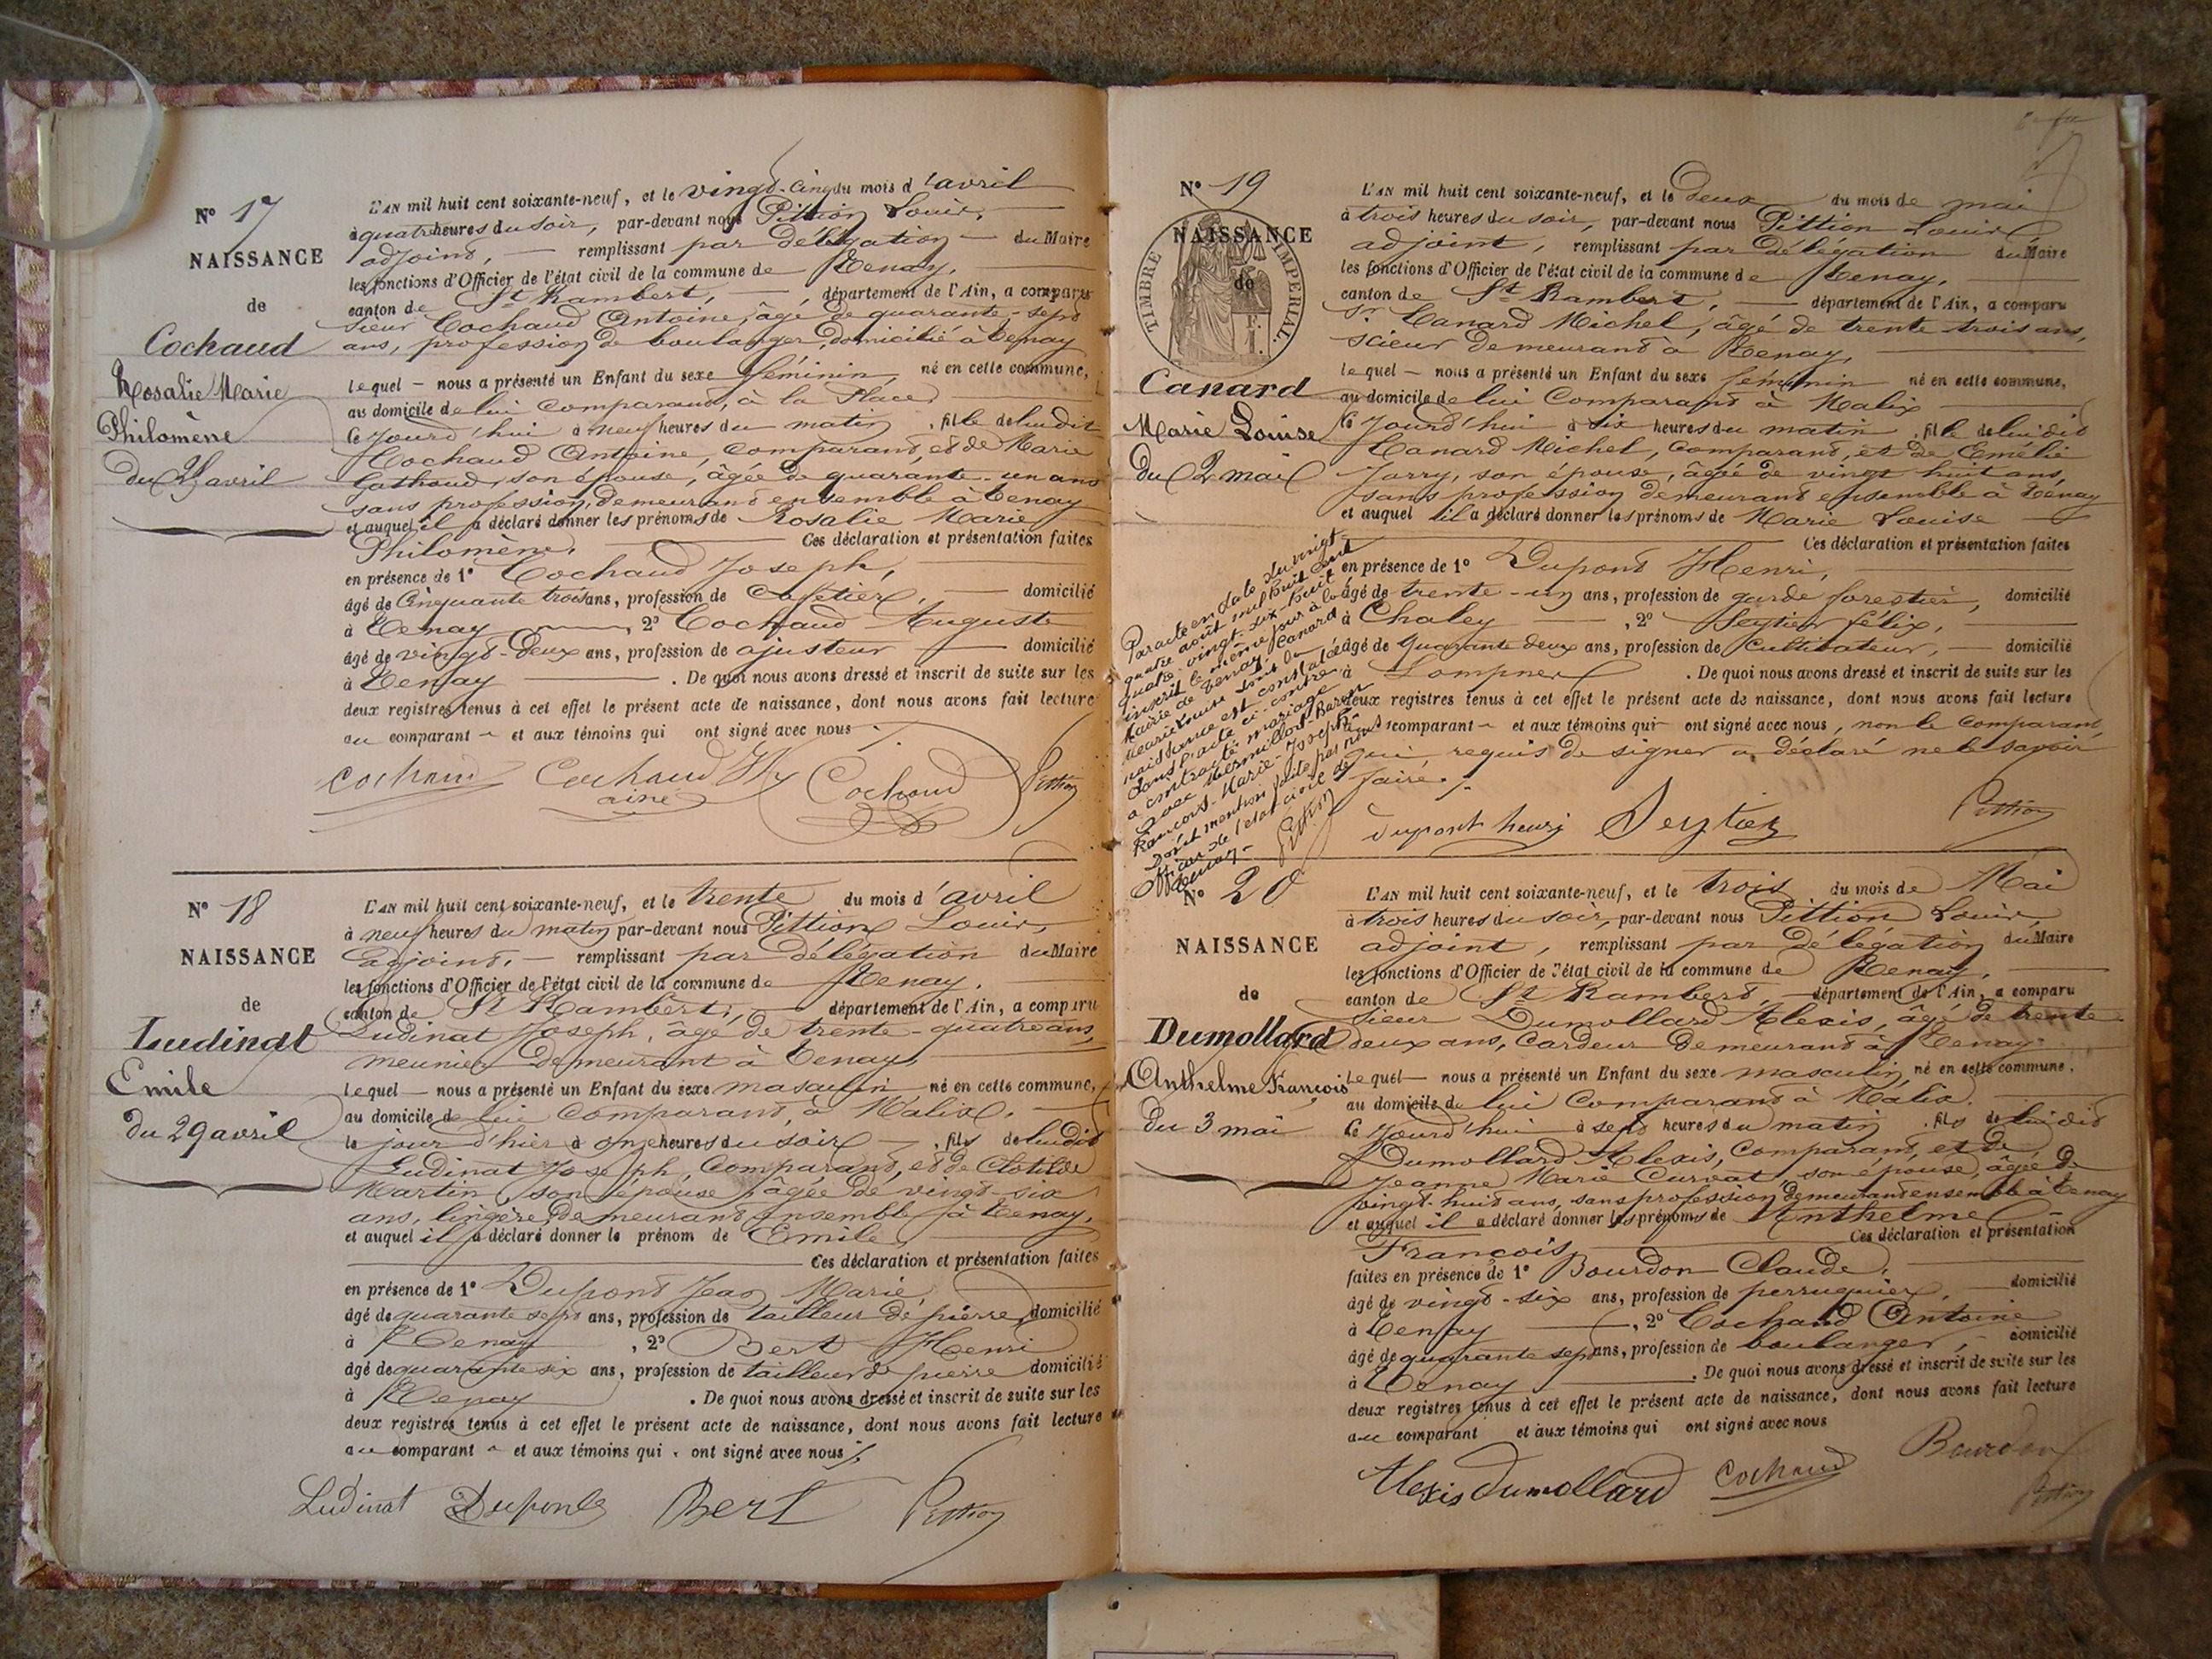 N° 17
NAISSANCE
de
Cochaud
Rosalie Marie
Philomène
du 25 avril
L'AN mil huit cent soixante-neuf, et le vingt-cinq du mois d'avril
à quatre heures du soir, par-devant nous Pittion Louis,
adjoint, remplissant par délégation du Maire
les fonctions d'Officier de l'état civil de la commune de Tenay,
canton de St Rambert, département de l'Ain, a comparu
sieur Cochaud Antoine, âgé de quarante-sept
ans, profession de boulanger, domicilié à Tenay
lequel nous a présenté un Enfant du sexe féminin, né en cette commune,
au domicile de lui comparant, à la Place,
ce jourd'hui à neuf heures du matin, fille de lui dit
Cochaud Antoine, comparant, et de Marie
son épouse, âgée de quarante-un ans
sans profession, demeurant ensemble à Tenay
et auquel il a déclaré donner les prénoms de Rosalie Marie
Philomène. Ces déclaration et présentation faites
en présence de 1° Cochaud Joseph,
âgé de Cinquante trois ans, profession de Cafetier, domicilié
à Tenay, 2° Cochaud Auguste
âgé de vingt-deux ans, profession de ajusteur domicilié
à Tenay. De quoi nous avons dressé et inscrit de suite sur les
deux registres tenus à cet effet le présent acte de naissance, dont nous avons fait lecture
au comparant et aux témoins qui ont signé avec nous.
Cochaud Cochaud Cochaud Pittion
ainé
N° 18
NAISSANCE
de
Ludinat
Emile
du 29 avril
L'AN mil huit cent soixante-neuf, et le trente du mois d'avril
à neuf heures du matin par-devant nous Pittion Louis,
adjoint, remplissant par délégation du Maire
les fonctions d'Officier de l'état civil de la commune de Tenay.
canton de St Rambert, département de l'Ain, a comparu
Ludinat Joseph, âgé de trente-quatre ans,
meunier demeurant à Tenay,
lequel nous a présenté un Enfant du sexe masculin né en cette commune,
au domicile de lui comparant, à Malix.
le jour d'hier à onze heures du soir, fils de lui dit
Ludinat Joseph, Comparant, et de Clotilde
Martin, son épouse, âgée de vingt-six
ans, lingère, demeurant ensemble à Tenay,
et auquel il a déclaré donner le prénom de Emile,
Ces déclaration et présentation faites
en présence de 1° Dupont Jean Marie
âgé de quarante sept ans, profession de tailleur de pierre, domicilié
à Tenay, 2° Bert Henri
âgé de quarante six ans, profession de tailleur de pierre domicilié
à Tenay. De quoi nous avons dressé et inscrit de suite sur les
deux registres tenus à cet effet le présent acte de naissance, dont nous avons fait lecture
au comparant et aux témoins qui ont signé avec nous.
Ludinat Dupont Bert Pittion
N° 19
NAISSANCE
de
TIMBRE IMPERIAL.
Canard
Marie Louise
du 2 mai
L'AN mil huit cent soixante-neuf, et le deux du mois de mai
à trois heures du soir, par-devant nous Pittion Louis,
adjoint, remplissant par délégation du Maire
les fonctions d'Officier de l'état civil de la commune de Tenay,
canton de St Rambert, département de l'Ain, a comparu
Sr Canard Michel, âgé de trente trois ans,
scieur demeurant à Tenay,
lequel nous a présenté un Enfant du sexe féminin né en cette commune,
au domicile de lui Comparant à Malix
ce jourd'hui à six heures du matin, fille de lui dit
Canard Michel, comparant, et de Emélie
Jarry, son épouse, âgée de vingt huit ans,
sans profession demeurant ensemble à Tenay
et auquel il a déclaré donner les prénoms de Marie Louise
Ces déclaration et présentation faites
en présence de 1° Dupont Henri,
âgé de trente-un ans, profession de garde forestier, domicilié
à Chaley, 2° Seytier félix,
âgé de Quarante deux ans, profession de Cultivateur, domicilié
à Lompnes. De quoi nous avons dressé et inscrit de suite sur les
deux registres tenus à cet effet le présent acte de naissance, dont nous avons fait lecture
au comparant et aux témoins qui ont signé avec nous, non le comparant,
qui requis de signer a déclaré ne le savoir
faire.
dupont henry Seytier Pittion
Par acte en date du vingt
quatre août mil huit cent
quatre-vingt-dix-huit
inscrit le même jour à la
Mairie de Tenay, Canard
Marie Louise dont la
naissance est constatée
dans l'acte ci-contre
a contracté mariage
avec
François-Marie-Joseph.
Dont mention faite par nous
Officier de l'état civil de
Tenay-
Pittion
N° 20
NAISSANCE
de
Dumollard
Anthelme François
du 3 mai
L'AN mil huit cent soixante-neuf, et le trois du mois de Mai
à trois heures du soir, par-devant nous Pittion Louis,
adjoint, remplissant par délégation du Maire
les fonctions d'Officier de l'état civil de la commune de Tenay,
canton de St Rambert, département de l'Ain, a comparu
Sieur Dumollard Alexis, âgé de trente
deux ans, Cardeur demeurant à Tenay
lequel nous a présenté un Enfant du sexe masculin, né en cette commune,
au domicile de lui Comparant à Malix.
ce jourd'hui à sept heures du matin, fils de lui dit
Dumollard Alexis, Comparant, et de
Jeanne Marie Curvat, son épouse, âgée de
vingt-huit ans, sans profession demeurant ensemble à Tenay
et auquel il a déclaré donner les prénoms de Anthelme
François, Ces déclaration et présentation
faites en présence de 1° Bourdon Claude,
âgé de vingt-six ans, profession de perruquier, domicilié
à Tenay, 2° Cochaud Antoine
âgé de quarante sept ans, profession de boulanger, domicilié
à Tenay. De quoi nous avons dressé et inscrit de suite sur les
deux registres tenus à cet effet le présent acte de naissance, dont nous avons fait lecture
au comparant et aux témoins qui ont signé avec nous
Alexis Dumollard Cochaud Bourdon
Pittion